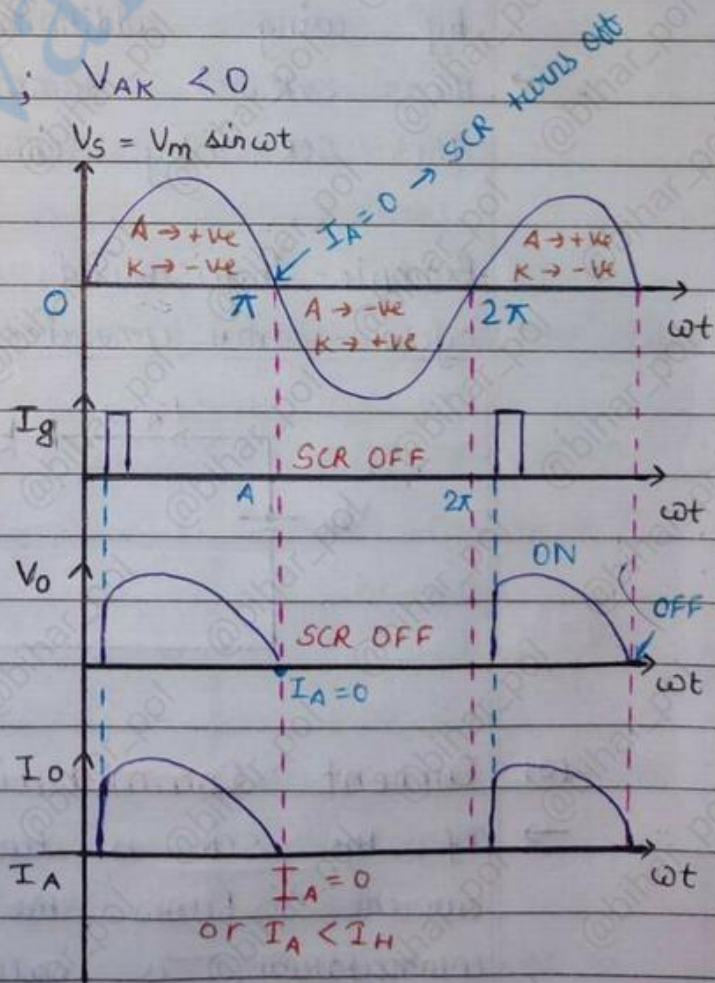 ; VAK < 0
VS = Vm sinωt
IA = 0 → SCR turns off
A → +ve
K → -ve
A → +ve
K → -ve
0
π
A → -ve
K → +ve
2π
ωt
Ig
SCR OFF
A
2π
ωt
V0
ON
SCR OFF
OFF
IA = 0
ωt
I0
IA
IA = 0
ωt
or IA < IH
@bihar_pol